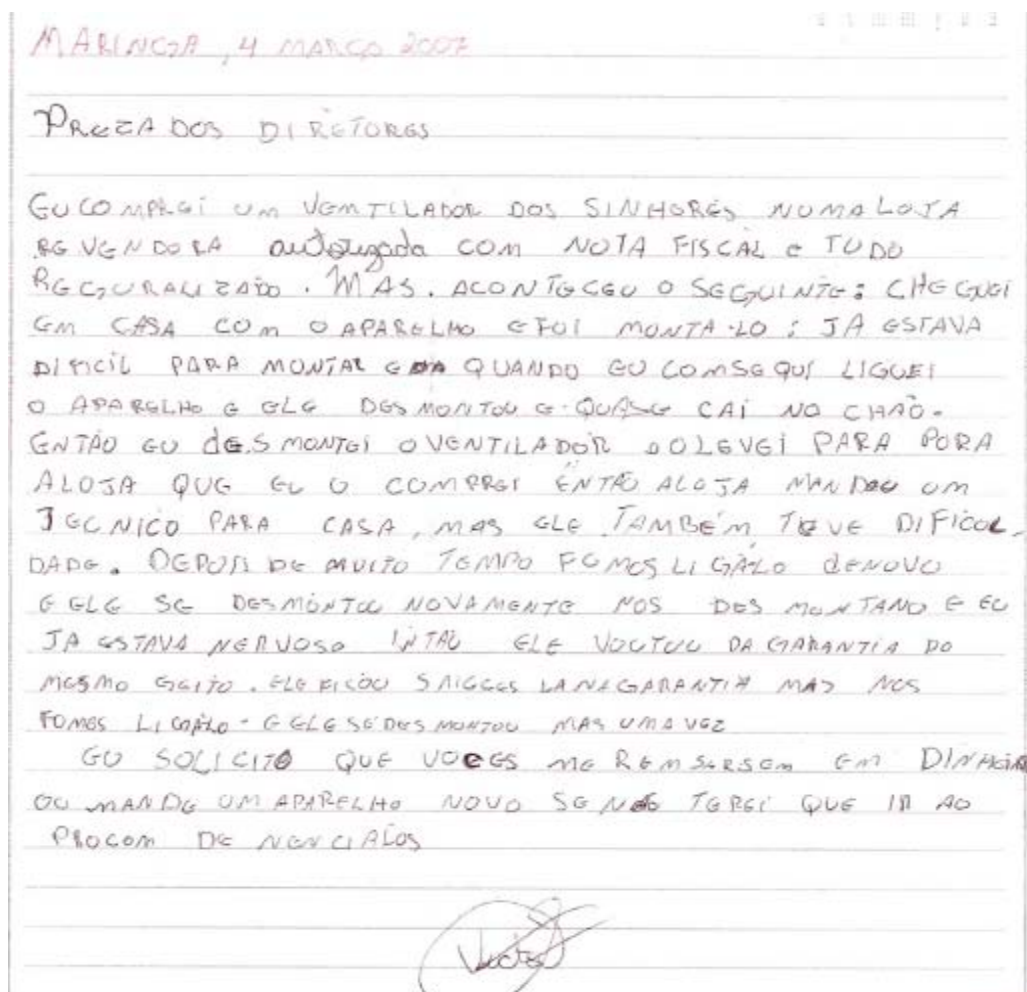 MARINGA, 4 MARÇO 2007
PREZADOS DIRETORES
EU COMPREI UM VEMTILADOR DOS SINHORES NUMA LOJA
REVENDORA autorizada COM NOTA FISCAL E TUDO
REGURALIZADO. MAS. ACONTECEU O SEGUINTE: CHEGUEI
EM CASA COM O APARELHO E FOI MONTA-LO; JA ESTAVA
DIFICIL PARA MONTAR E QUANDO EU COMSEQUI LIGUEI
O APARELHO E ELE DESMONTOU E QUASE CAI NO CHÃO.
ENTÃO EU dESMONTEI O VENTILADOR O LEVEI PARA PORA
ALOJA QUE EU O COMPREI ENTÃO ALOJA MANDOU UM
TECNICO PARA CASA, MAS ELE TAMBÉM TEVE DIFICUL-
DADE. DEPOIS DE MUITO TEMPO FOMOS LIGÁLO dENOVO
E ELE SE DESMONTOU NOVAMENTE NOS DESMONTANO E EU
JA ESTAVA NERVOSO INTAO ELE VOUTOU DA GARANTIA DO
MESMO GEITO. ELE FICOU LA NA GARANTIA MAS NOS
FOMOS LIGÁLO E ELE SE DESMONTOU MAS UMA VEZ
EU SOLICITO QUE VOCES ME REMSARSEM EM DINHEIRO
OU MANDE UM APARELHO NOVO SE NÃO TEREI QUE IR AO
PROCOM DENENCIALOS